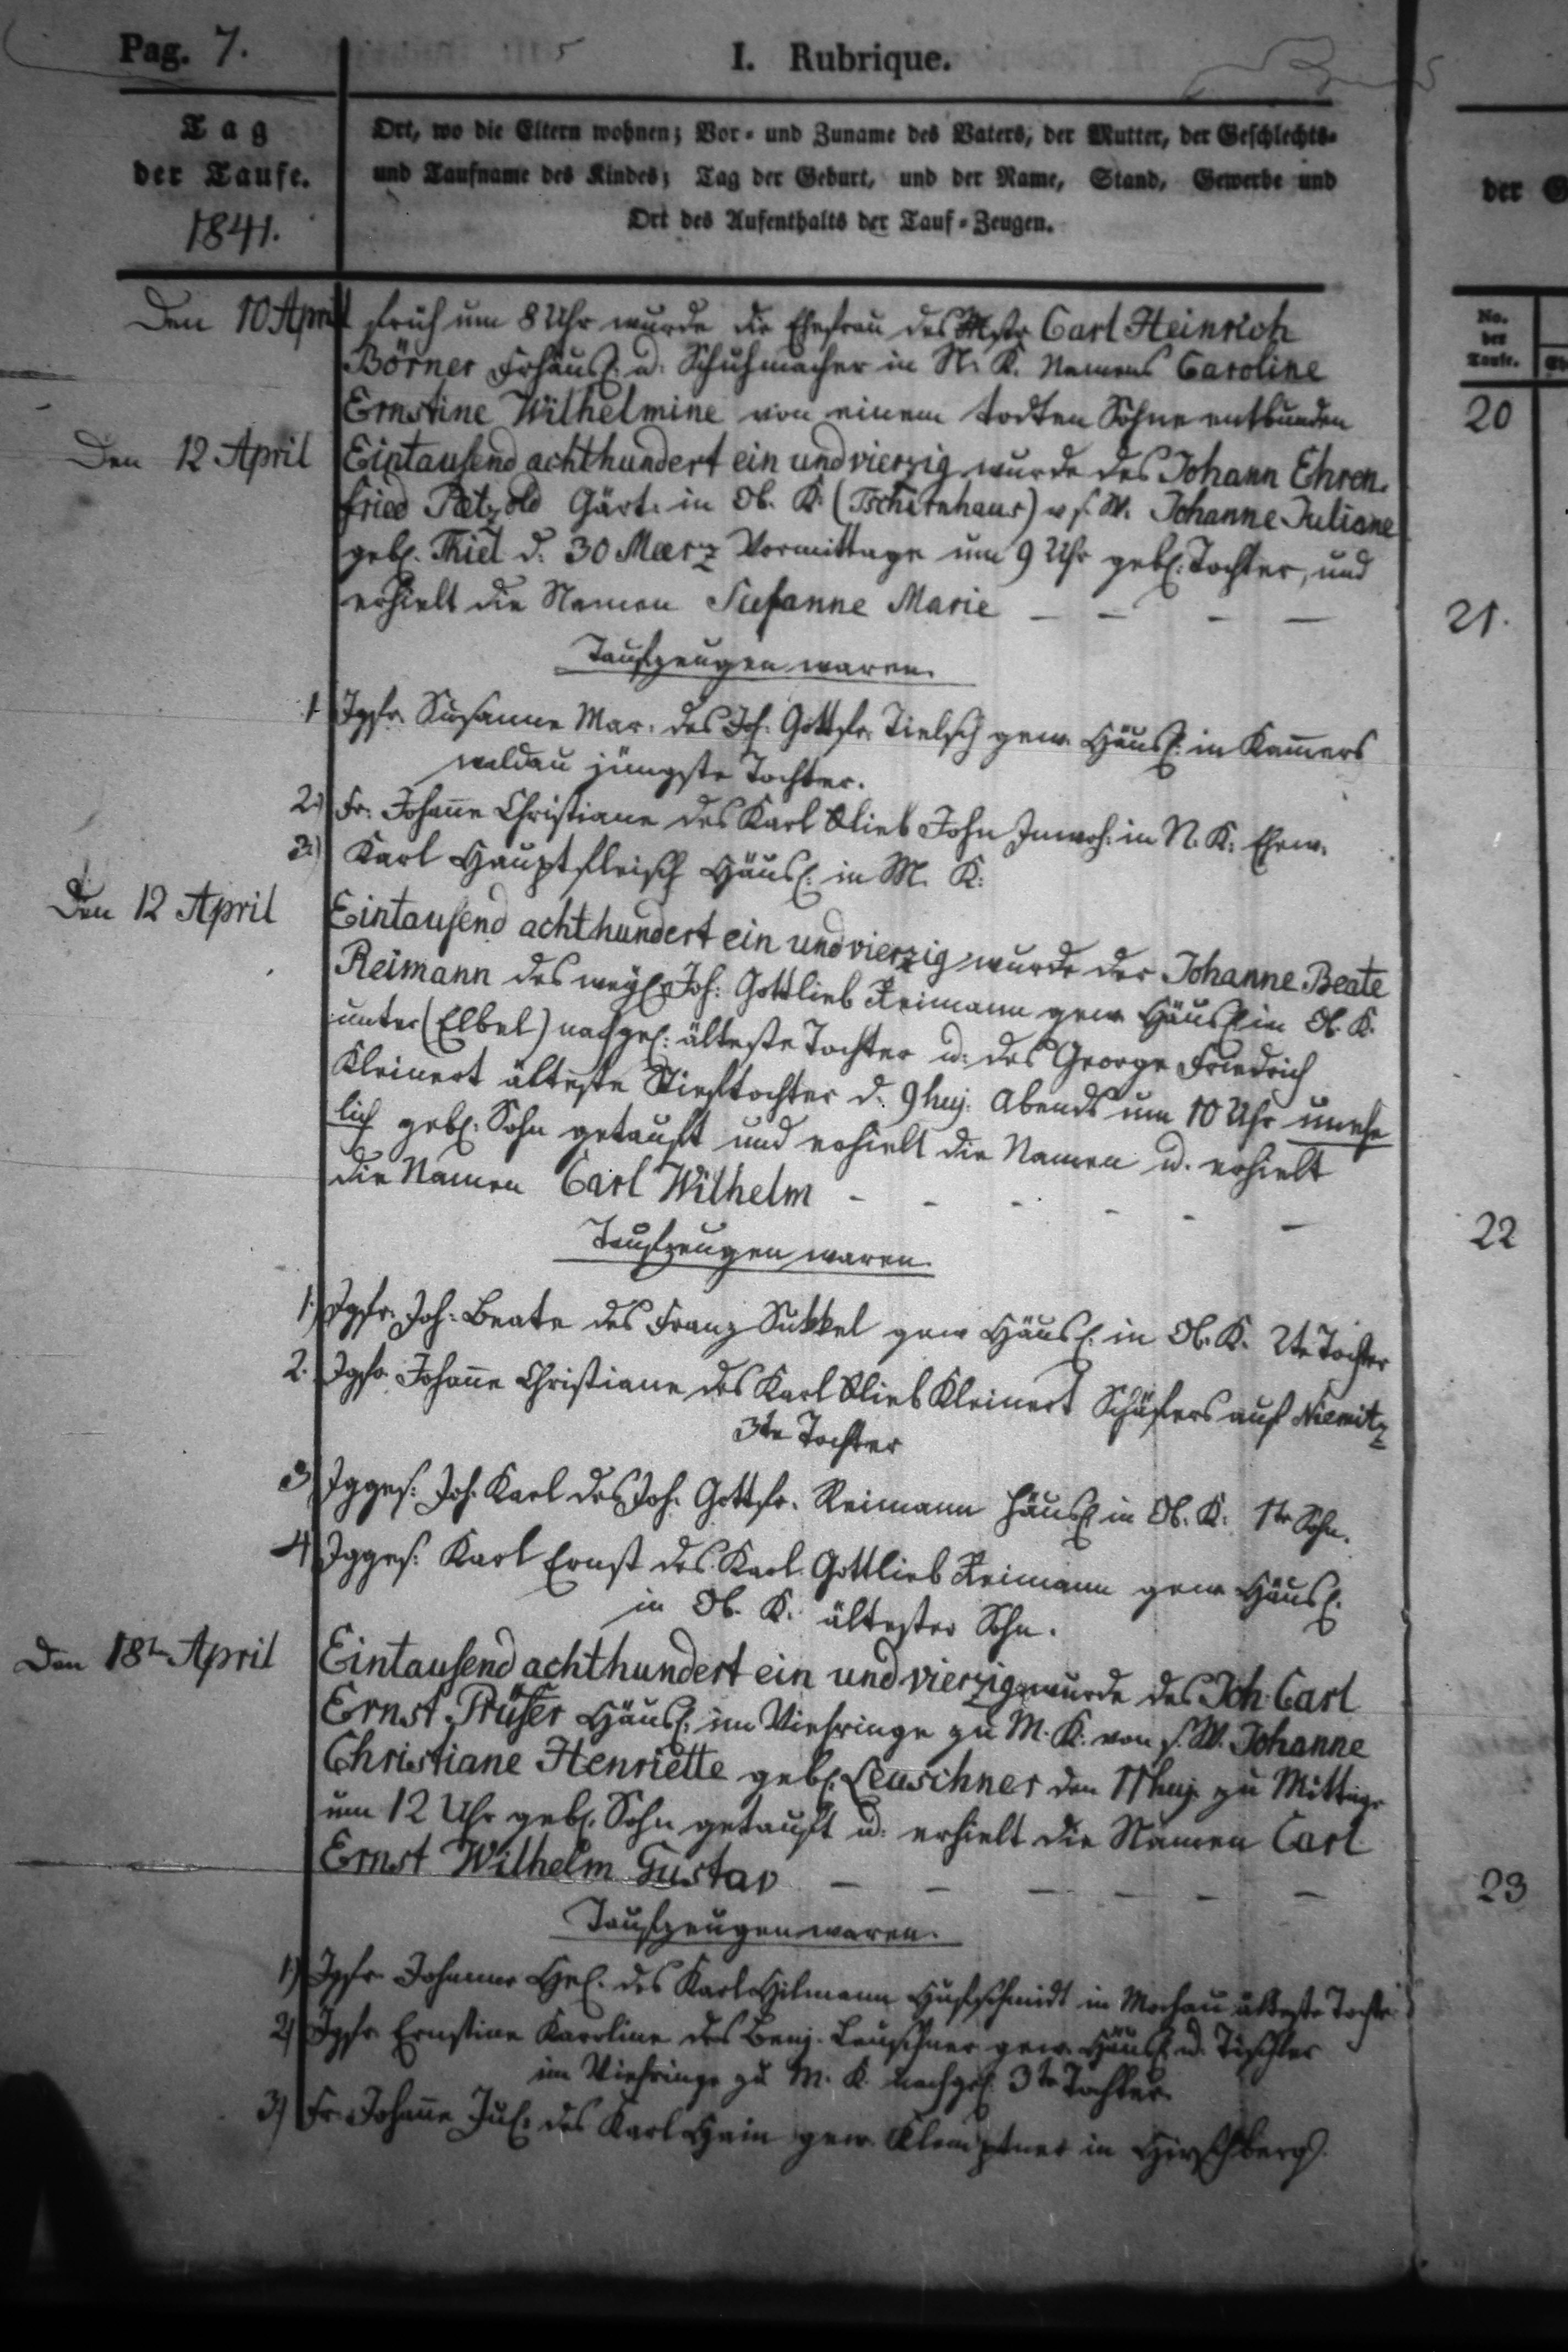 Pag. 7.
I. Rubrique.
Tag
der Taufe.
1841.
Ort, wo die Eltern wohnen; Vor- und Zuname des Vaters, der Mutter, der Geschlechts-
und Taufname des Kindes; Tag der Geburt, und der Name, Stand, Gewerbe und
Ort des Aufenthalts der Tauf-Zeugen.
der
No.
der
Taufe.
Den 10 April früh um 8 Uhr wurde die Ehefrau des Mstr Carl Heinrich
Börner Frhäusl. u. Schuhmacher in N. K. Namens Caroline
Ernstine Wilhelmine von einem todten Sohne entbunden
20
Den 12 April Eintausend achthundert ein und vierzig wurde des Johann Ehren-
fried Pätzold Gärt. in Ob. K. (Tschirnhaus) v. s. W. Johanne Juliane
geb. Thiel d. 30 Maerz Vormittage um 9 Uhr geb. Tochter, und
erhielt die Namen Susanne Marie
21.
Taufzeugen waren.
1 Jgfr. Susanne Mar. des Joh. Gottfr. Tielsch gew. Häusl. in Kam̄ers
waldau jüngste Tochter.
2.) Fr. Johan̄e Christiane des Karl Glieb John Inwoh. in N. K. Ehew.
3.) Karl Hauptfleisch Häusl. in M. K.
Den 12 April Eintausend achthundert ein und vierzig wurde der Johanne Beate
Reimann des weyl. Joh. Gottlieb Reimann gew. Häusl. in Ob. K.
unter (Elbel) nachgel. älteste Tochter u. des George Friedrich
Kleinert älteste Stieftochter d. 9 huj. Abends um 10 Uhr unehe
lich geb. Sohn getauft und erhielt die Namen u. erhielt
die Namen Carl Wilhelm
22
Taufzeugen waren.
1.) Jgfr. Joh. Beate des Franz Suckel gew. Häusl. in Ob. K. 2te Tochter
2. Jgfr. Johan̄e Christiane des Karl Glieb Kleinert Schäfers auf Niemitz
3te Tochter
3) Jgges. Joh. Karl des Joh. Gottfr. Reimann Häusl. in Ob. K. 1tr Sohn.
4) Jgges. Karl Ernst des Karl Gottlieb Reimann gew. Häusl.
in Ob. K. ältester Sohn.
Den 18ten April Eintausend achthundert ein und vierzig wurde des Joh. Carl
Ernst Prüfer Häusl. im Viehringe zu M. K. von s. W. Johanne
Christiane Henriette geb. Leuschner den 11 huj. zu Mittage
um 12 Uhr geb. Sohn getauft u. erhielt die Namen Carl
Ernst Wilhelm Gustav
23
Taufzeugen waren.
1) Jgfr. Johanne Hel. des Karl Hilmann Hufschmidt in Mochau älteste Tochter
2) Jgfr. Ernstine Karoline des Benj. Leuschner gew. Häusl. u. Tischler
im Viehringe zu M. K. nachgel. 3te Tochter.
3) Fr. Johan̄e Jul. des Karl Hain gew. Klemptner in Hirschberg.